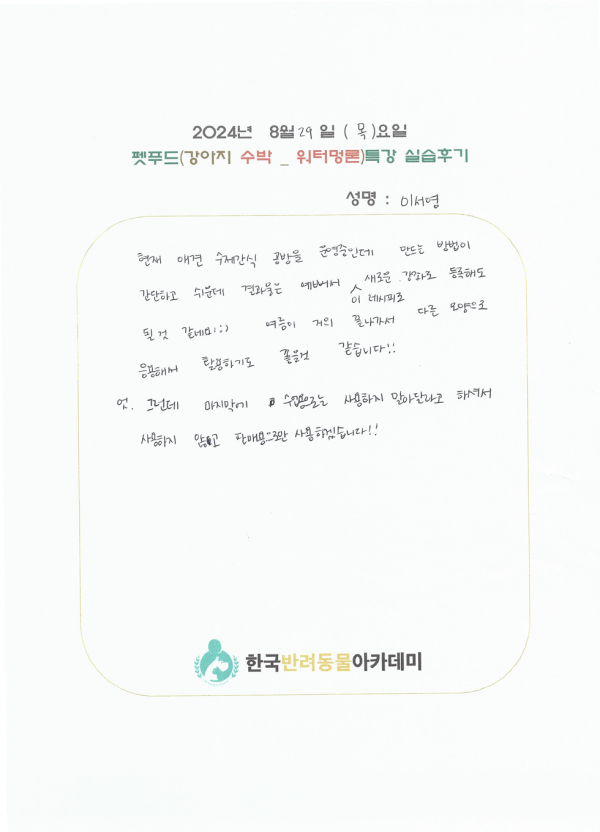 2024년 8월 29일 (목)요일
펫푸드(강아지 수박 _ 워터멍론)특강 실습후기
성명 : 이서영
현재 애견 수제간식 공방을 운영중인데 만드는 방법이
간단하고 쉬운데 결과물은 예뻐서 이 레시피로 새로운 강좌로 등록해도
될 것 같네요!:) 여름이 거의 끝나가서 다른 모양으로
응용해서 활용하기도 좋을것 같습니다!!
엇. 그런데 마지막에 수업용도로는 사용하지 말아달라고 하셔서
사용하지 않고 판매용으로만 사용하겠습니다!!
한국반려동물아카데미